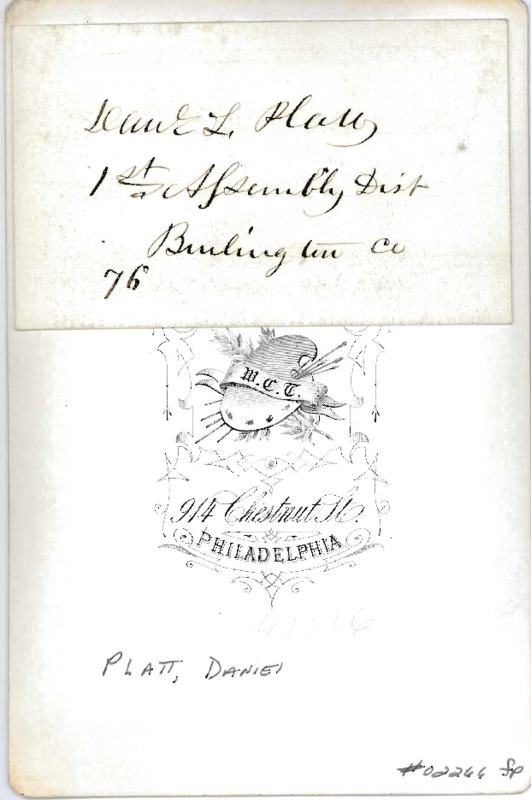 Danl L. Platt
1st Assembly Dist
Burlington Co
76
W. C. T.
914 Chestnut St.
PHILADELPHIA
PLATT, DANIEL
#02266 fp